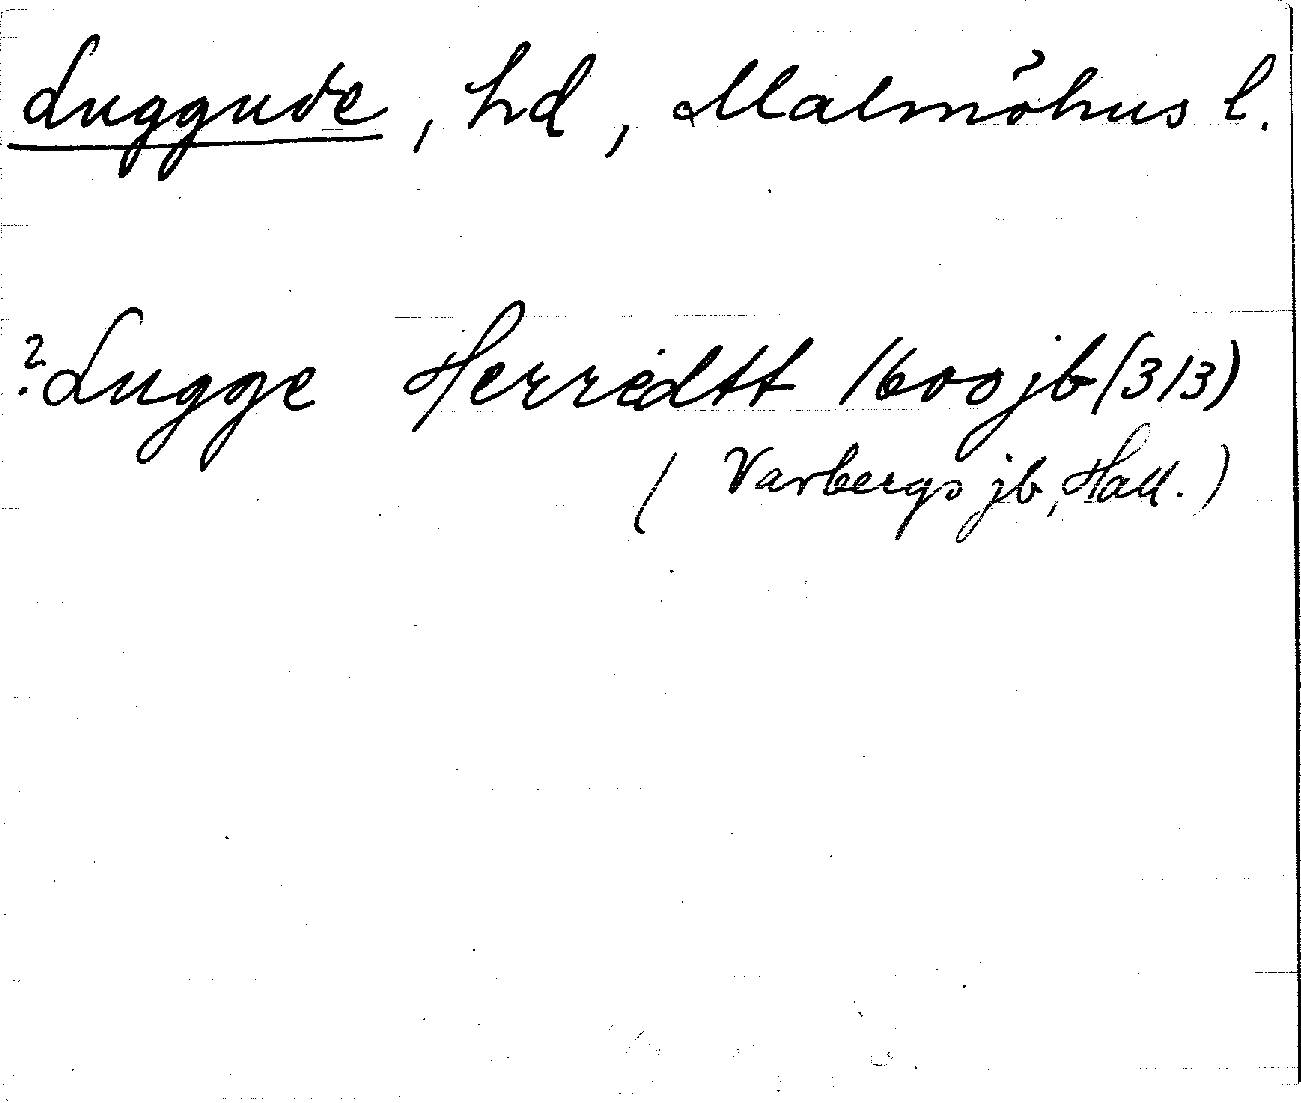 Luggude, hd, Malmöhus l.
? Lugge Herredtt 1600 jb (313)
( Varbergs jb, Hall. )